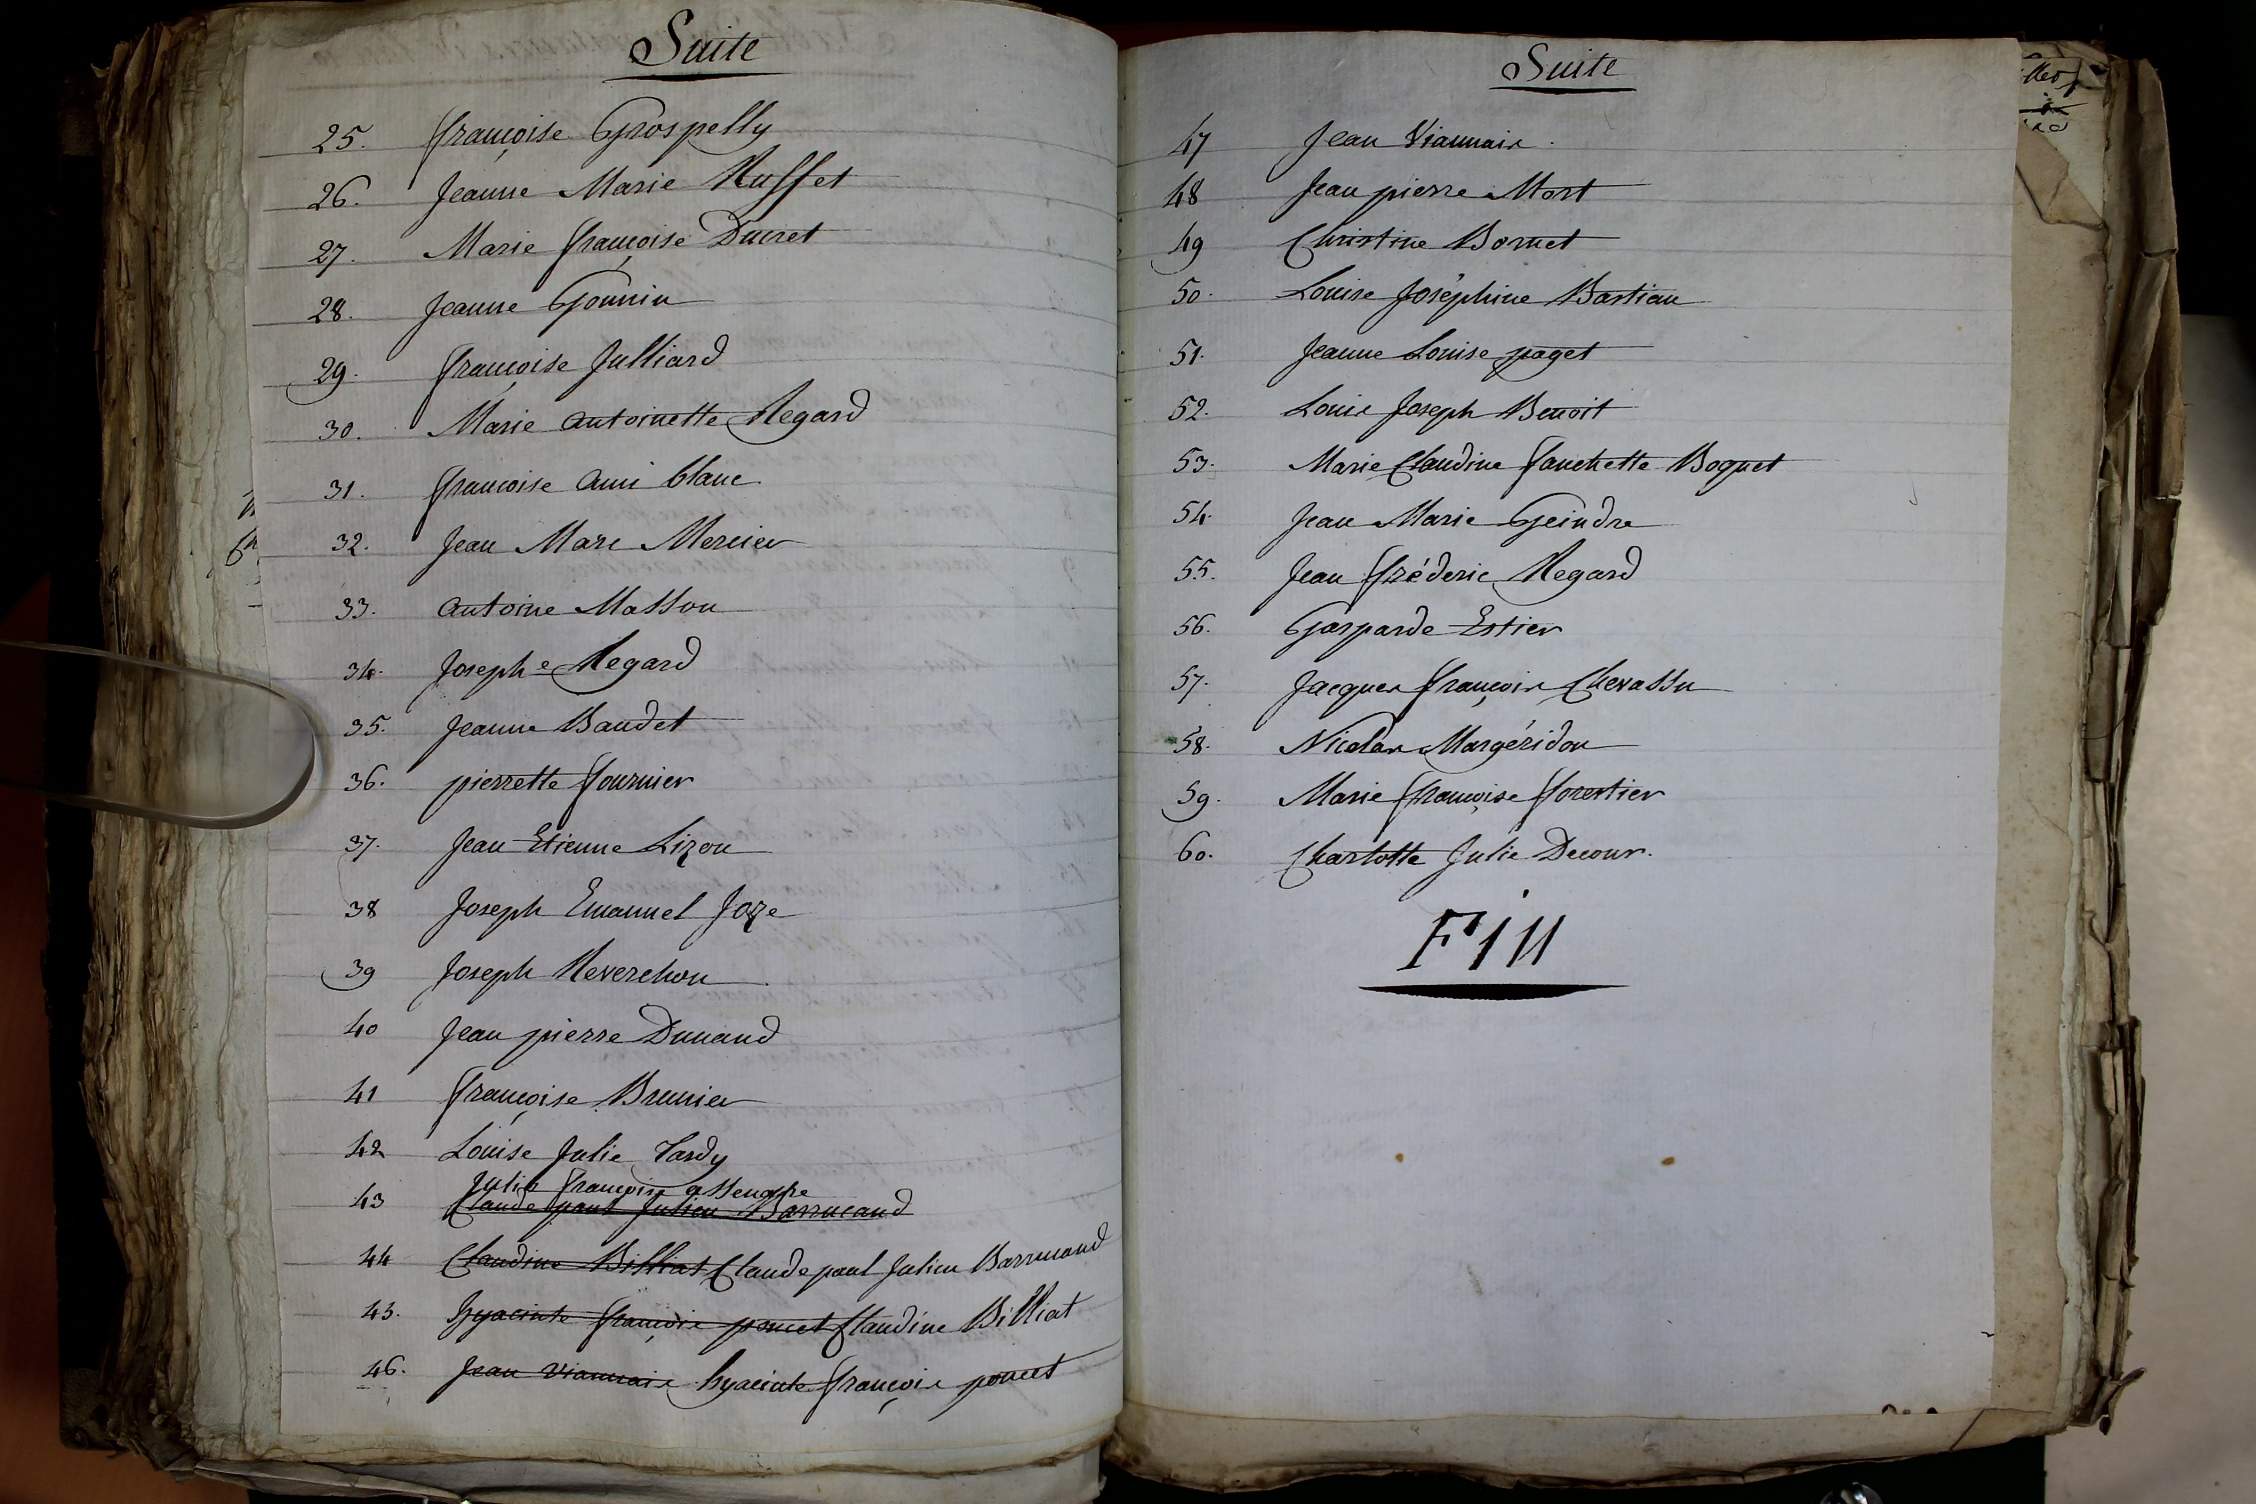 Suite
25. françoise Grospelly
26. Jeanne Marie Ruffet
27. Marie françoise Ducret
28. Jeanne Gounin
29. françoise Julliard
30. Marie antoinette Regard
31. francoise ami blanc
32. Jean Marc Mercier
33. antoine Masson
34. Josephe Regard
35. Jeanne Baudet
36. pierrette fournier
37. Jean Etienne Lizon
38 Joseph Emanuel Joze
39 Joseph Reverchon
40 Jean pierre Dunand
41 françoise Brunier
42 Louise Julie Tardy
Julie françoise
43 Claude paul Julien Barrucand
44 Claudine Billiat Claude paul Julien Barrucand
45. hyacinte françois poncet Claudine Billiat
46. Jean Viannais hyacinte françois poncet
Suite
47 Jean Viannais
48 Jean pierre Mort
49 Christine Bornet
50. Louise Joséphine Bastian
51. Jeanne Louise paget
52. Louis Joseph Benoit
53. Marie Claudine fanchette Boquet
54. Jean Marie Geindre
55. Jean fréderic Regard
56. Gasparde Estier
57. Jacques françois Chevassu
58. Nicolas Margéridon
59. Marie françoise forestier
60. Charlotte Julie Decour.
Fin